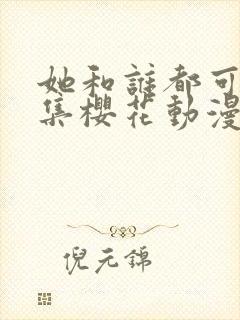 她和誰都可
集櫻花動漫
倪元錦